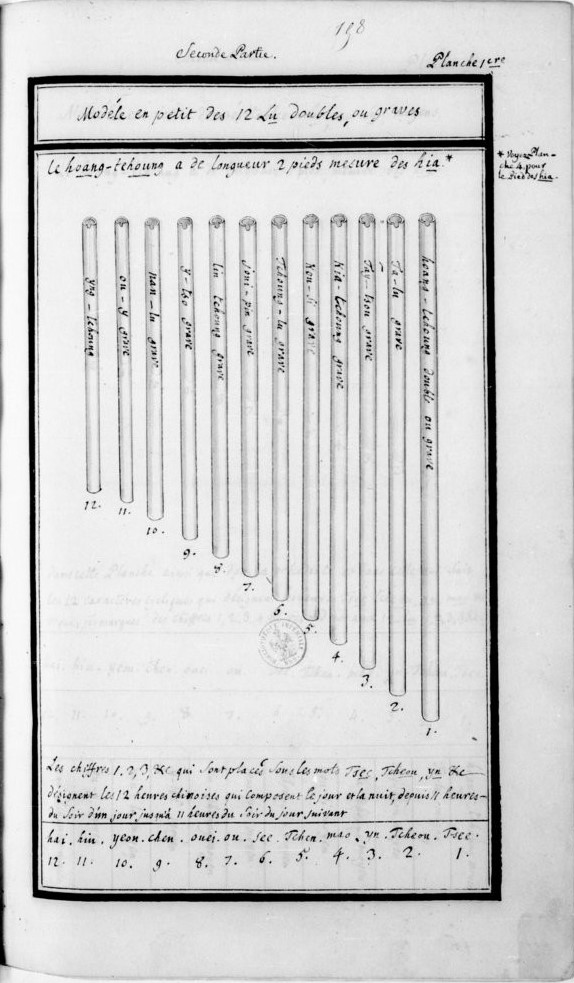 198
Seconde Partie.
Planche 1ere
Modéle en petit des 12 Lu doubles, ou graves
le hoang-tchoung a de longueur 2 pieds mesure des hia.*
* Voyez Plan-
che 4. pour
le Pied des hia.
yng-tchoung
ou-y grave
nan-lu grave
y-tso grave
lin tchoung grave
joui-pin grave
Tchoung-lu grave
Kou-si grave
Kia-tchoung grave
Tay-tsou grave
Ta-lu grave
hoang-tchoung double ou grave
12. 11. 10. 9. 8. 7. 6. 5. 4. 3. 2. 1.
Les chiffres 1, 2, 3, &c qui sont placés sous les mots Tsee, Tcheou, yn &c
désignent les 12 heures chinoises qui composent le jour et la nuit, depuis 11 heures
du soir d'un jour, jusqu'à 11 heures du soir du jour suivant
hai. hiu. yeou. chen. ouei. ou. see. Tchen. mao. yn. Tcheou. Tsee.
12. 11. 10. 9. 8. 7. 6. 5. 4. 3. 2. 1.